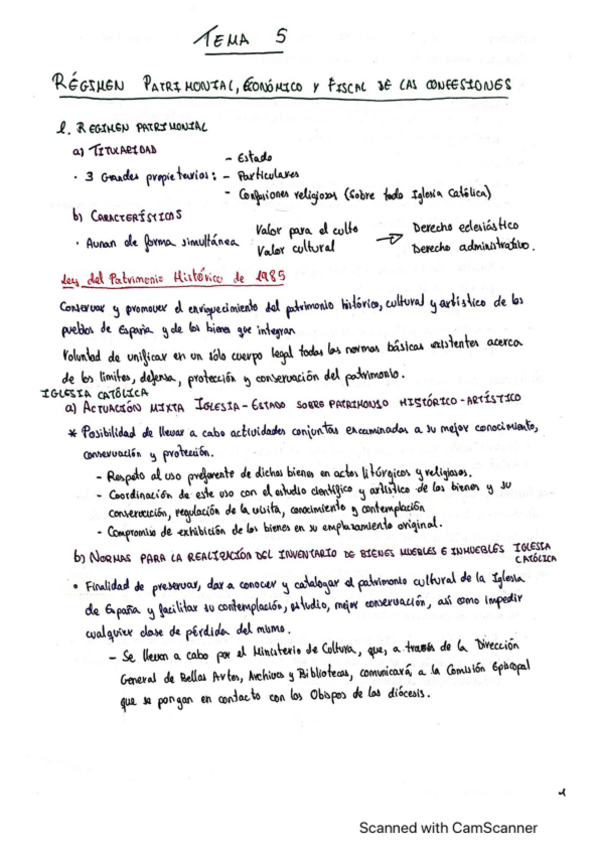 TEMA 5
RÉGIMEN PATRIMONIAL, ECONÓMICO Y FISCAL DE LAS CONFESIONES
1. REGIMEN PATRIMONIAL
a) TITULARIDAD
- Estado
· 3 Grandes propietarios: - Particulares
- Confesiones religiosas (sobre todo Iglesia Católica)
b) CARACTERÍSTICAS
· Aunan de forma simultánea Valor para el culto → Derecho eclesiástico
Valor cultural Derecho administrativo.
Ley del Patrimonio Histórico de 1985
Conservar y promover el enriquecimiento del patrimonio histórico, cultural y artístico de los
pueblos de España y de los bienes que integran
Voluntad de unificar en un sólo cuerpo legal todas las normas básicas existentes acerca
de los límites, defensa, protección y conservación del patrimonio.
IGLESIA CATÓLICA
a) ACTUACIÓN MIXTA IGLESIA-ESTADO SOBRE PATRIMONIO HISTÓRICO-ARTÍSTICO
* Posibilidad de llevar a cabo actividades conjuntas encaminadas a su mejor conocimiento,
conservación y protección.
- Respeto al uso preferente de dichos bienes en actos litúrgicos y religiosos.
- Coordinación de este uso con el estudio científico y artístico de los bienes y su
conservación, regulación de la visita, conocimiento y contemplación
- Compromiso de exhibición de los bienes en su emplazamiento original.
b) NORMAS PARA LA REALIZACIÓN DEL INVENTARIO DE BIENES MUEBLES E INMUEBLES IGLESIA
CATÓLICA
· Finalidad de preservar, dar a conocer y catalogar el patrimonio cultural de la Iglesia
de España y facilitar su contemplación, estudio, mejor conservación, así como impedir
cualquier clase de pérdida del mismo.
- Se llevan a cabo por el Ministerio de Cultura, que, a través de la Dirección
General de Bellas Artes, Archivos y Bibliotecas, comunicará a la Comisión Episcopal
que se pongan en contacto con los Obispos de las diócesis.
1
Scanned with CamScanner